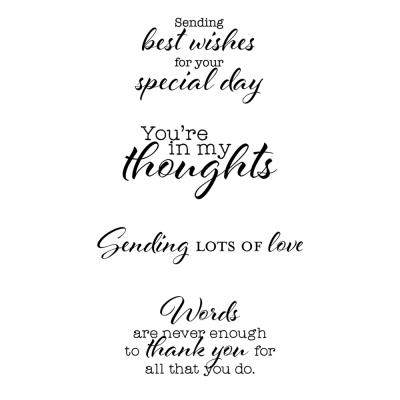 Sending
best wishes
for your
special day
You're
in my
thoughts
Sending LOTS OF love
Words
are never enough
to thank you for
all that you do.